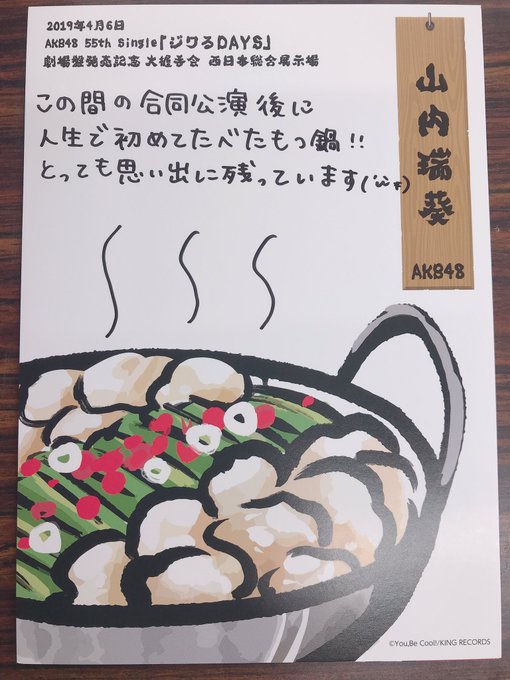 2019年4月6日
AKB48 55th Single「ジワるDAYS」
劇場盤発売記念 大握手会 西日本総合展示場
この間の合同公演後に
人生で初めてたべたもつ鍋!!
とっても思い出に残っています(´ω`*)
山内瑞葵
AKB48
©You,Be Cool!/KING RECORDS